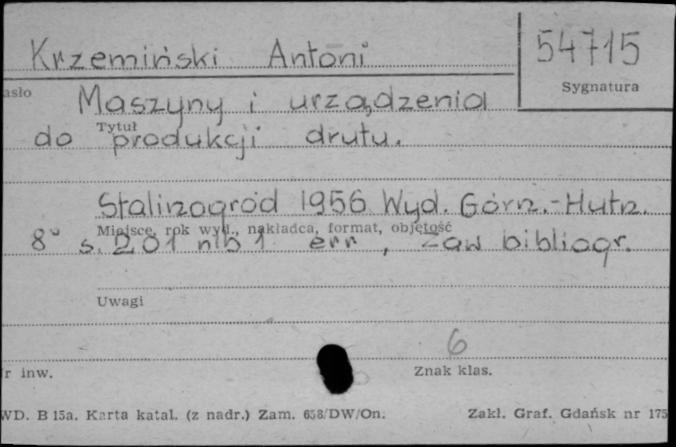 Krzemiński Antoni 54715
asło Sygnatura
Maszyny i urządzenia
Tytuł
do produkcji drutu.
Stalinogród 1956 Wyd. Górn.-Hutn.
Miejsce, rok wyd., nakładca, format, objętość
8° s. 201 nlb 1 err, zaw bibliogr.
Uwagi
6
r inw. Znak klas.
WD. B 15a. Karta katal. (z nadr.) Zam. 658/DW/On. Zakł. Graf. Gdańsk nr 175